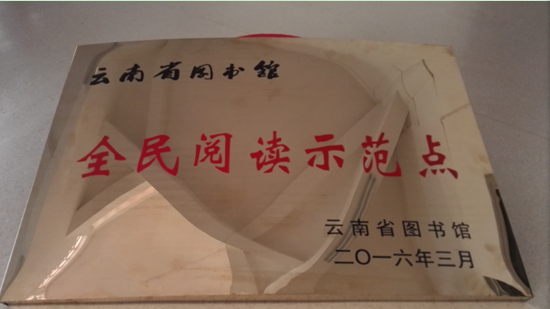 云南省图书馆
全民阅读示范点
云南省图书馆
二〇一六年三月